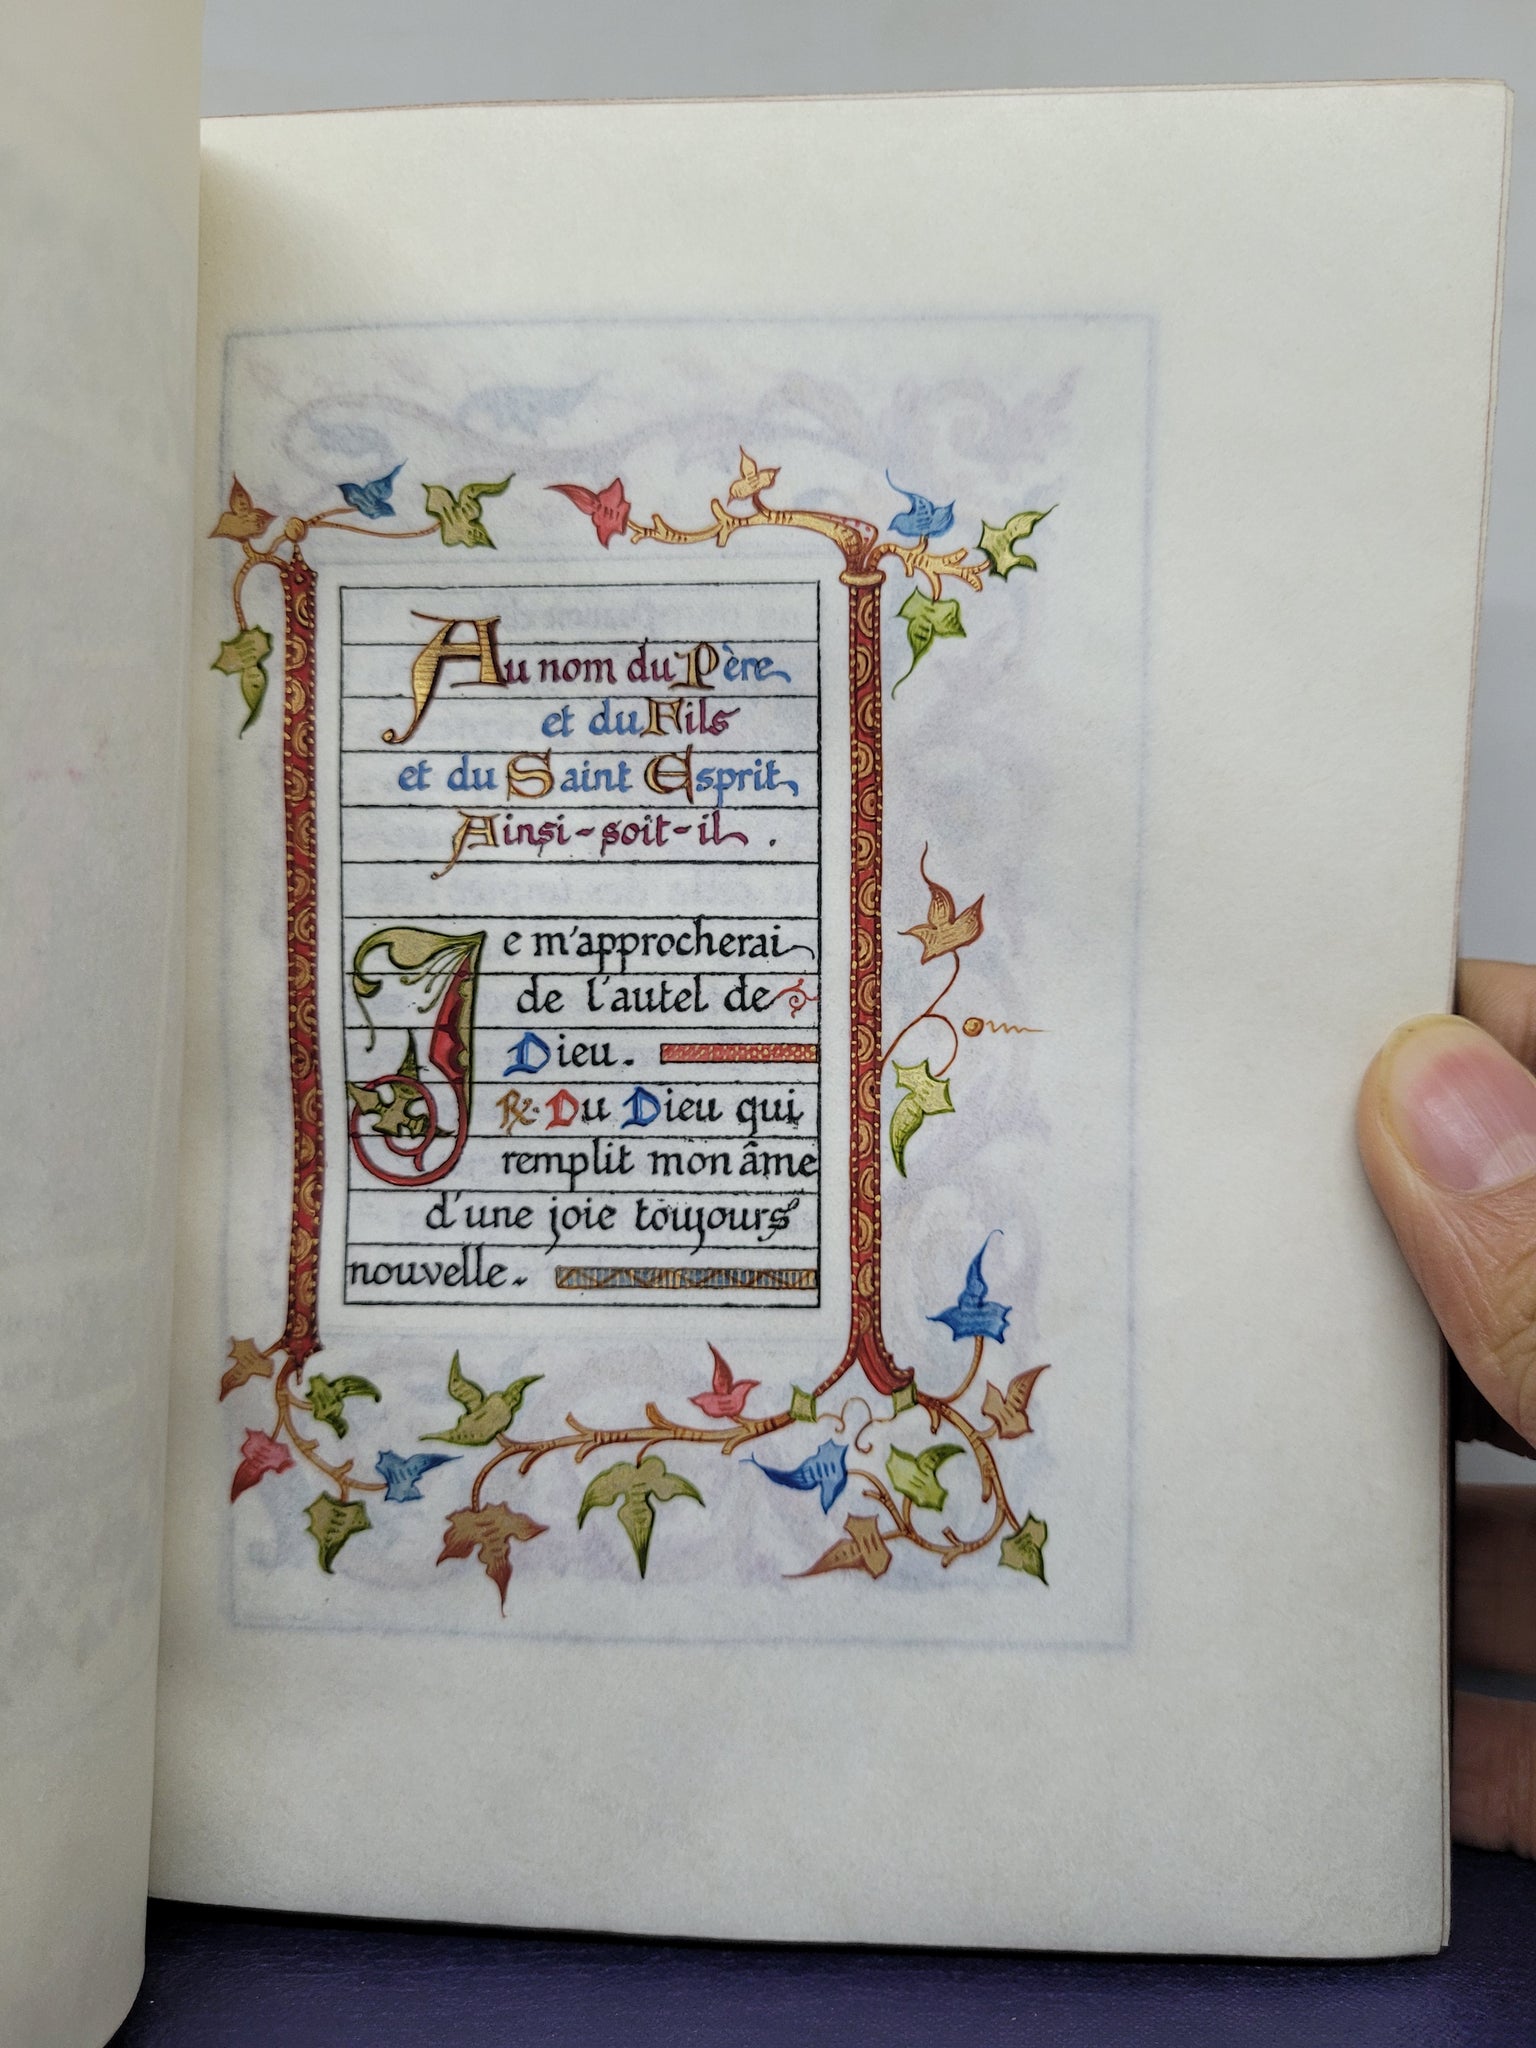 Au nom du Père
et du Fils
et du Saint Esprit
Ainsi-soit-il.
Je m'approcherai
de l'autel de
Dieu.
℟. Du Dieu qui
remplit mon âme
d'une joie toujours
nouvelle.